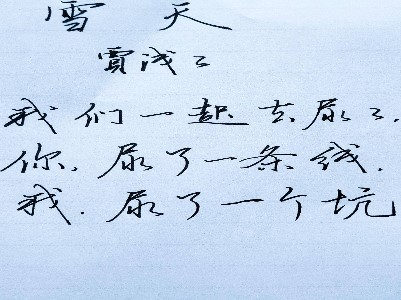 雪天
贾浅浅
我们一起去尿尿,
你,尿了一条线,
我,尿了一个坑